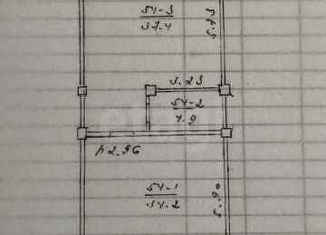 54-3
37.4
5.93
3.23
54-2
4.9
h 2.96
54-1
34.2
5.90